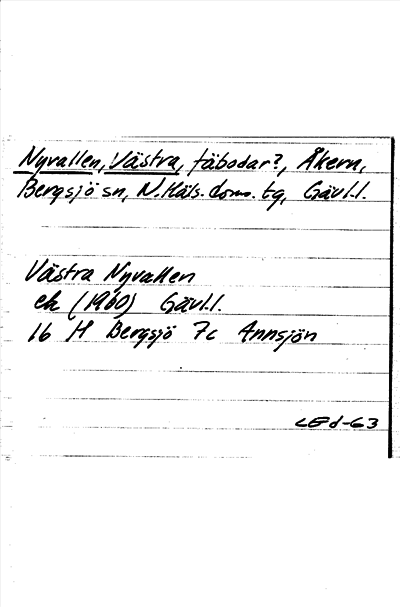 Nyvallen, Västra, fäbodar?, Åkern,
Bergsjö sn, N. Häls. doms. tg, Gävl.l.
Västra Nyvallen
ek (1960) Gävl.l.
16 H Bergsjö 7c Annsjön
LEd-63